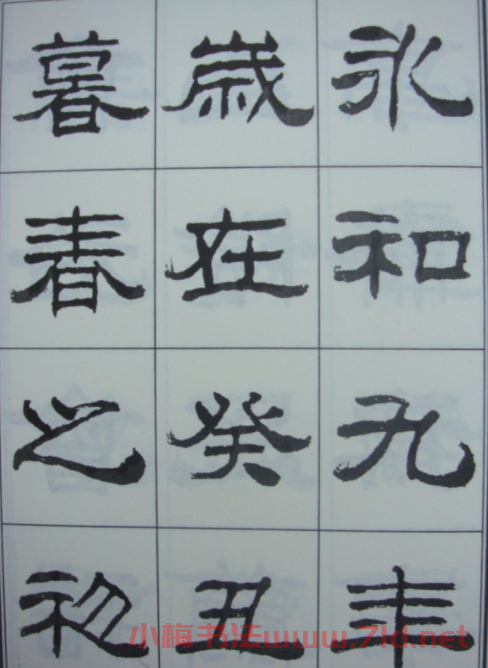 永和九年
歲在癸丑
暮春之初
小梅书法www.7ld.net